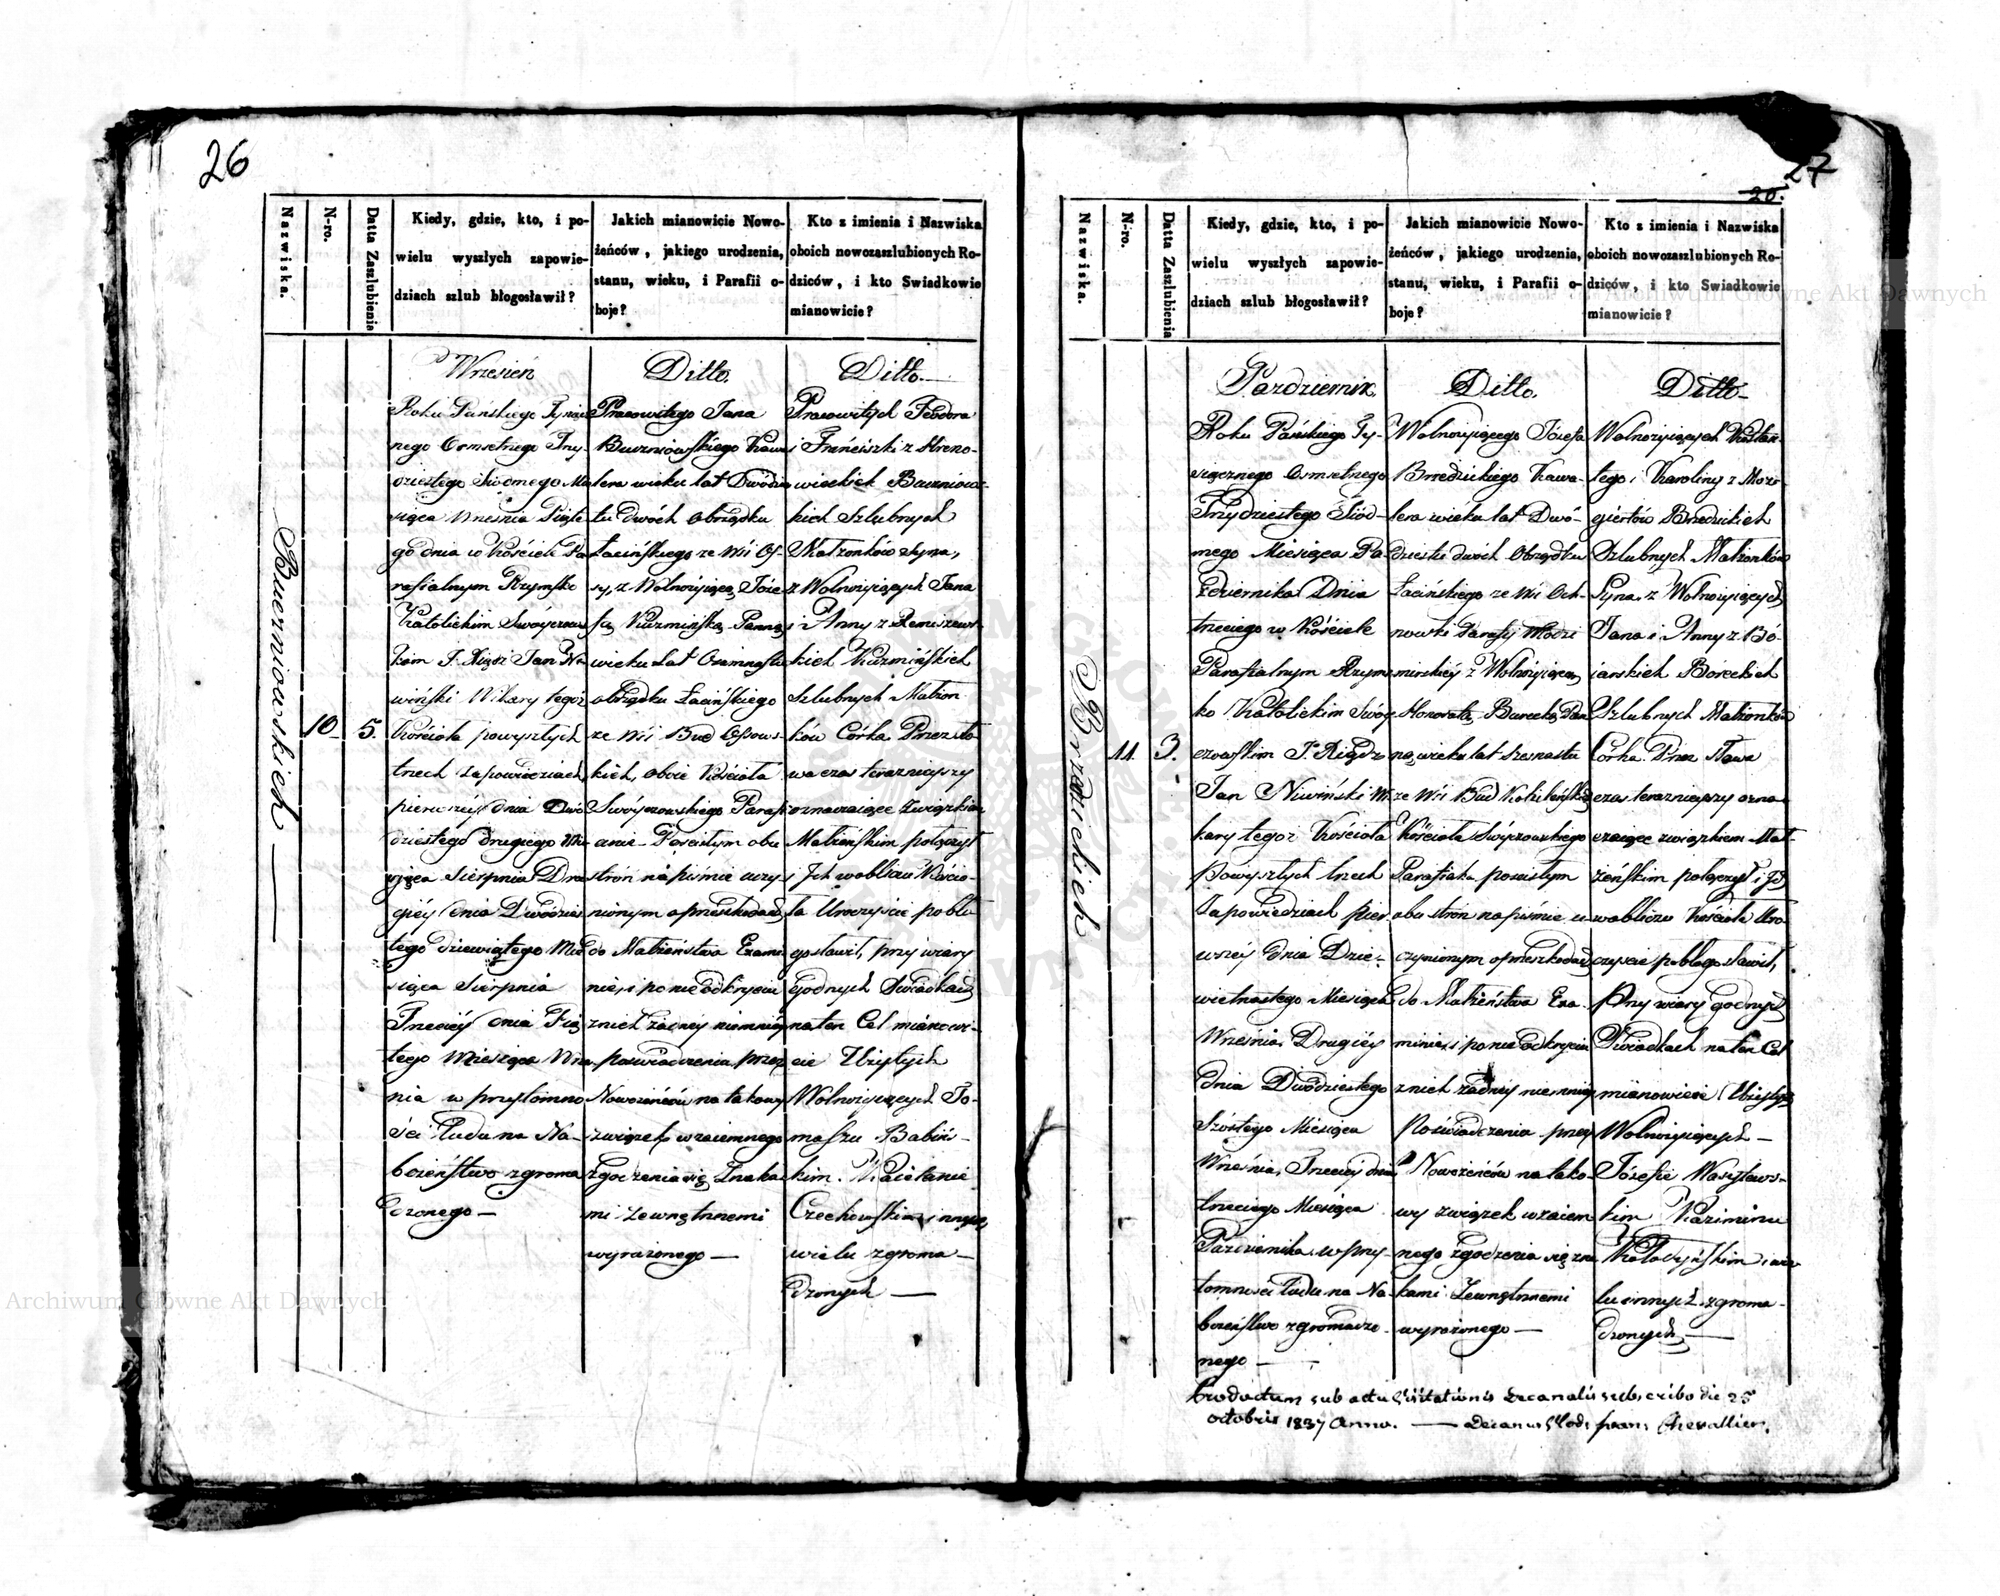 26
Nazwiska.
N-ro.
Datta Zaszlubienia
Kiedy, gdzie, kto, i po-
wielu wyszłych zapowie-
dziach szlub błogosławił?
Jakich mianowicie Nowo-
żeńców, jakiego urodzenia,
stanu, wieku, i Parafii o-
boje?
Kto z imienia i Nazwiska
oboich nowozaszlubionych Ro-
dziców, i kto Swiadkowie
mianowicie?
Buczniowskich
10
5.
Wrzesień
Roku Pańskiego Tysiąc
nego Osmsetnego Trzy-
dziestego Siódmego Mie
siąca Wrzesnia Piąte
go dnia w Kościele Pa
rafialnym Rzymsko
Katolickim Swóyczows
kim J. Xiądz Jan Ni
wiński Wikary tegoż
Kościoła powyszłych
trzech zapowiedziach
pierwszéy dnia Dwu
dziestego drugiego Mie
siąca Sierpnia Dru
giéy dnia Dwudzies
tego dziewiątego Mie
siąca Sierpnia
Trzeciéy dnia Pią
tego Miesiąca Wrze
nia w przytomno
ści Ludu na Na-
bożeństwo zgroma
dzonego —
Ditto.
Pracowitego Jana
Buczniowskiego Kawa
lera wieku lat Dwódzies
tu dwóch Obrządku
Łacińskiego ze Wsi Os-
sy, z Wolnożyjącą Józe
fą Kuzmińską Panną
wieku Lat Osimnastu
obrządku Łacińskiego
ze Wsi Bud Ossows-
kich, oboie Kościoła
Swóyczowskiego Parafi
anie Pościstym obu
stron na piśmie uczy
nionym oprzeszkodach
do Małżeństwa Exami
nie, i po nieodkryciu
znich żadney niemniéy
poswiadczenia przez
Nowożeńców na takowy
związek wzaiemnego
zgodzenia się Znaka
mi Zewnętrznemi
wyrażonego —
Ditto —
Pracowitych Teodora
i Franciszki z Hreno-
wieckich Buczniows-
kich Szlubnych
Małżonków Syna,
z Wolnożyiących Jana
i Anny z Remiszews
kich Kuzmińskich
Szlubnych Małżon
ków Córka Przez sło-
wa czas teraznieyszy
oznaczaiące Związkiem
Małżeńskim połączył
i Jch wobliczu Kościo-
ła Uroczyście pobło
gosławił, przy wiary
godnych Swiadkach
na ten Cel mianowi-
cie Użytych
Wolnożyiących To-
maszu Babiń-
kim. Kaietanie
Czechowskim i innych
wielu zgroma-
dzonych —
27
26.
Nazwiska.
N-ro.
Datta Zaszlubienia
Kiedy, gdzie, kto, i po-
wielu wyszłych zapowie-
dziach szlub błogosławił?
Jakich mianowicie Nowo-
żeńców, jakiego urodzenia,
stanu, wieku, i Parafii o-
boje?
Kto z imienia i Nazwiska
oboich nowozaszlubionych Ro-
dziców, i kto Swiadkowie
mianowicie?
Brzedzickich
11.
3.
Pazdziernik.
Roku Pańskiego Ty-
siącznego Osmsetnego
Trzydziestego Siód-
mego Miesiąca Pa
ździernika Dnia
trzeciego w Kościele
Parafialnym Rzyms
ko Katolickim Swóy
czowskim J. Xiądz
Jan Niwiński Wi
kary tegoż Kościoła
Powyszłych trzech
Zapowiedziach pier
wszéy dnia Dzie-
więtnastego Miesiąca
Wrzesnia, Drugiéy
dnia Dwódziestego
Szóstego Miesiąca
Września, Trzeciéy dnia
trzeciego Miesiąca
Pazdziernika, w przy-
tomnosci Ludu na Na-
bożeństwo zgromadzo-
nego —
Ditto.
Wolnożyiącego Józefa
Brzedzickiego Kawa-
lera wieku lat Dwó-
dziestu dwóch Obrządku
Łacińskiego ze Wsi Och-
nowki Parafij Włodzi
mirskiéy z Wolnożyiącą
Honoratą Burecką Pan
ną, wieku lat szesnastu
ze Wsi Bud
Kościoła Swóyczowskiego
Parafianką poscistym
obu stron na piśmie u
czynionym oprzeszkodach
do Małżeństwa Exa
minie, i po nieodkryciu
znich żadnéy niemniéy
Poświadczenia przez
Nowożeńców na tako-
wy związek wzaiem
nego zgodzenia się zna
kami Zewnętrznemi
wyrażonego —
Ditto —
Wolnożyiących
tego i Karoliny z
Brzedzickich
Szlubnych Małżonków
Syna, z Wolnożyiących
Jana i Anny z Bó-
iarskich Boreckich
Szlubnych Małżonków
Córka. Przez Słowa
czas teraznieyszy ozna
czaiące związkiem Mał-
żeńskim połączył i Jch
wobliczu Kościoła Uro-
czyscie pobłogosławił,
Przy wiary godnych
Swiadkach na ten Cel
mianowicie Użytych
Wolnożyiących —
Józefie Wasyłows-
kim Kazimirzu
Kołodyńskim i wie
lu innych zgroma-
dzonych —
Productum sub actu Visitationis Decanalis subscribo die 25
octobris 1837 Anno. — Decanus Vlod. Franc Chevallier.
Archiwum Główne Akt Dawnych
Archiwum Główne Akt Dawnych